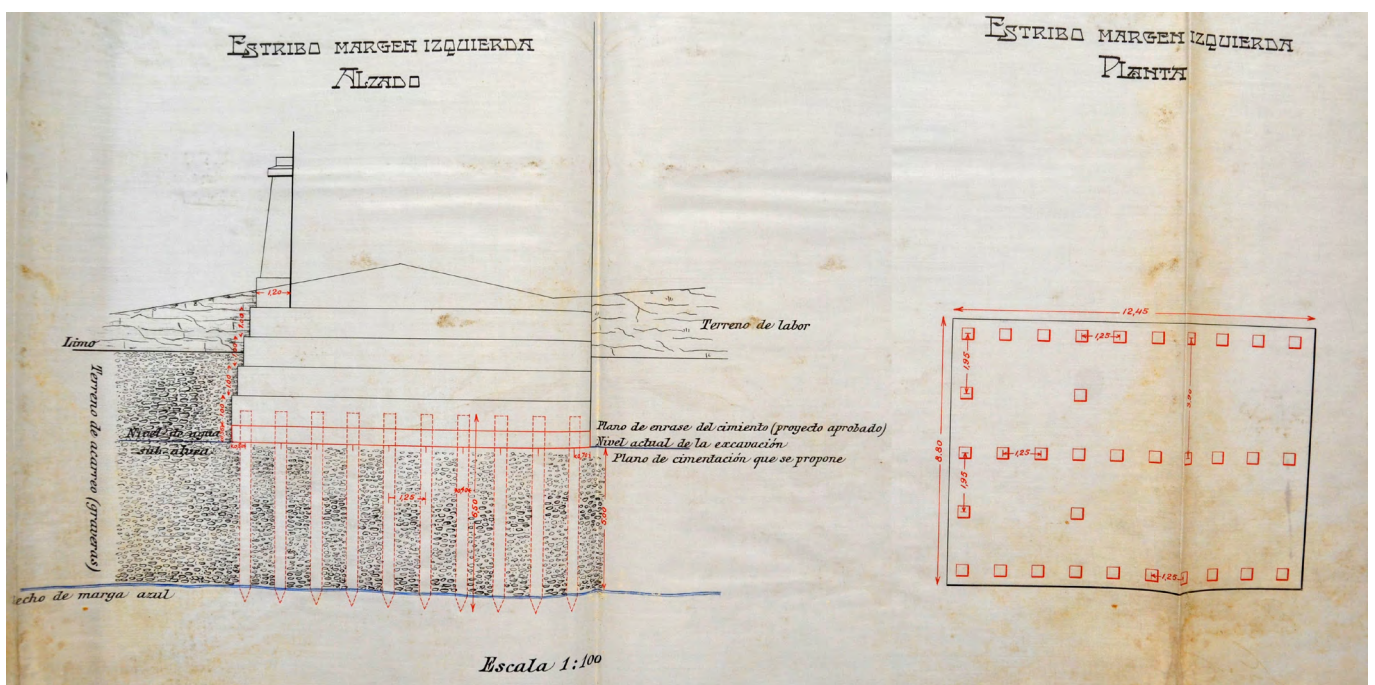 ESTRIBO MARGEN IZQUIERDA
ALZADO
1,20
1,00
1,00
1,00
Limo
Terreno de acarreo (graveras)
Nivel de agua
sub-alvea
Terreno de labor
Plano de enrase del cimiento (proyecto aprobado)
Nivel actual de la excavación
Plano de cimentación que se propone
1,25
0,40
6,50
5,00
echo de marga azul
Escala 1:100
ESTRIBO MARGEN IZQUIERDA
PLANTA
12,45
8,80
1,25
1,95
1,25
1,95
1,25